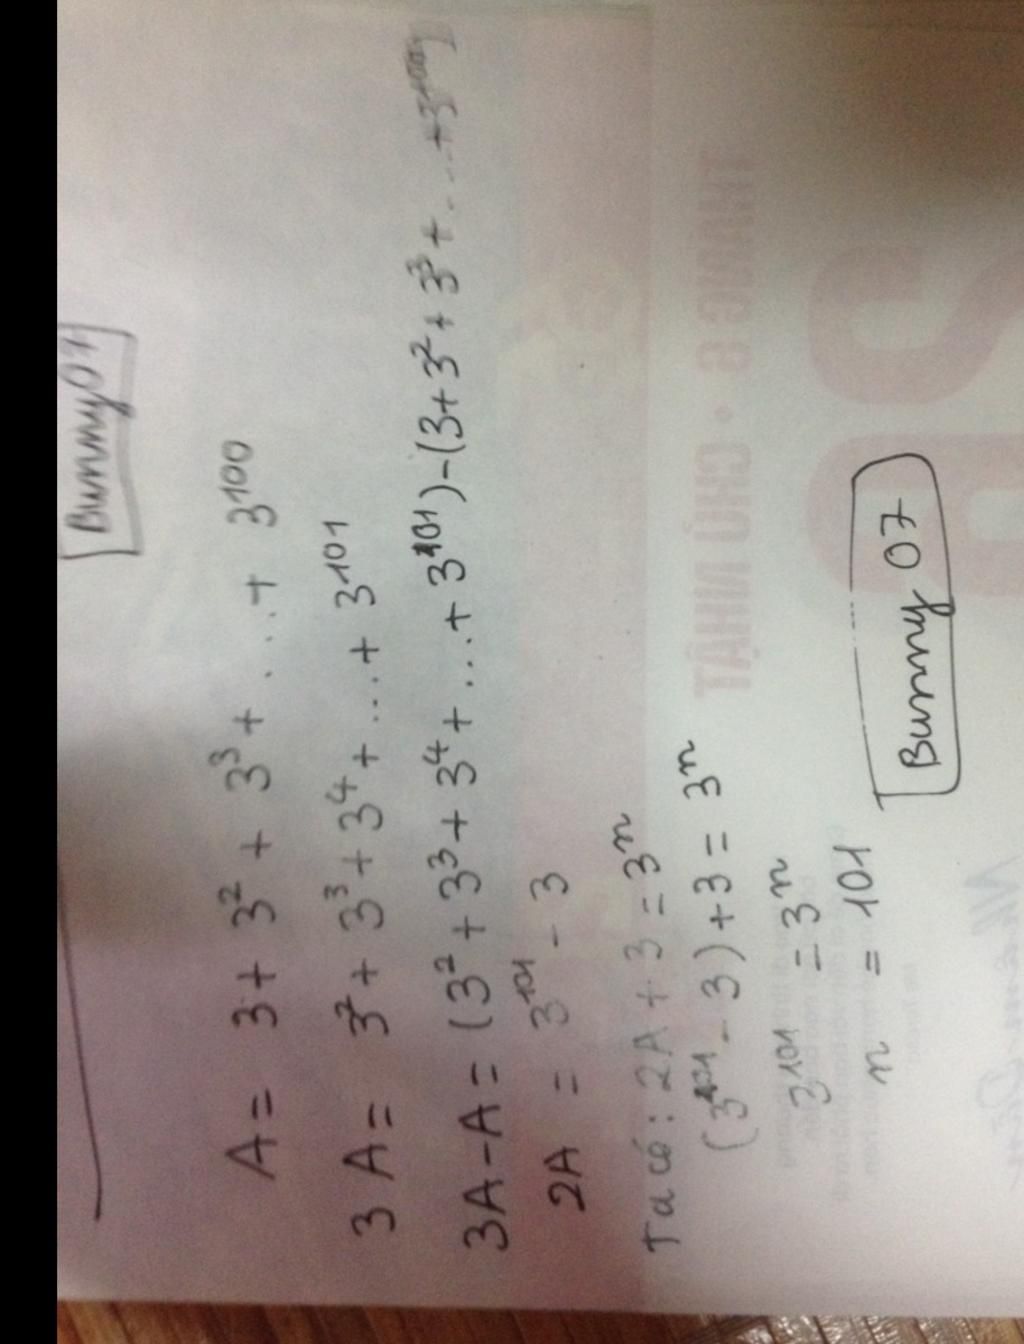 Bunny 07
A = 3 + 3² + 3³ + ... + 3¹⁰⁰
3A = 3² + 3³ + 3⁴ + ... + 3¹⁰¹
3A - A = (3² + 3³ + 3⁴ + ... + 3¹⁰¹) - (3 + 3² + 3³ + ... + 3¹⁰⁰)
2A = 3¹⁰¹ - 3
Ta có: 2A + 3 = 3ⁿ
(3¹⁰¹ - 3) + 3 = 3ⁿ
3¹⁰¹ = 3ⁿ
n = 101
Bunny 07